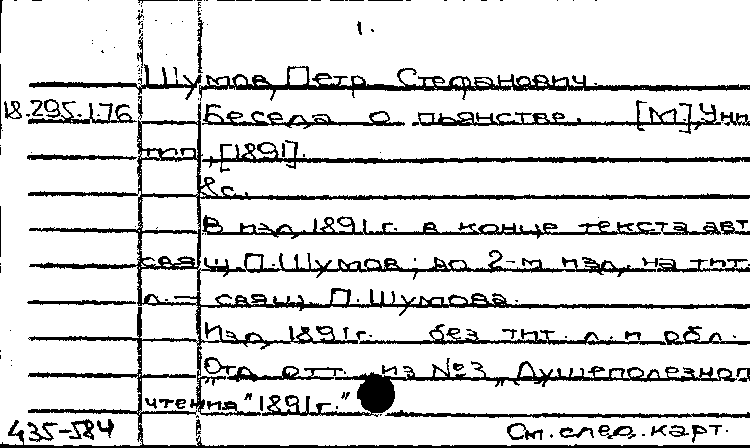 1.
Шумов, Петр Стефанович.
18.295.176 Беседа о пьянстве. [М], Унив.
тип., [1891].
8с.
В изд. 1891г. в конце текста авт.
свящ. П. Шумов; во 2-м изд. на тит.
л. = свящ. П. Шумова.
Изд. 1891г. без тит. л. и обл.
"Отд. отт. из №3 „Душеполезного
чтения" 1891г."
435-584 См. след. карт.